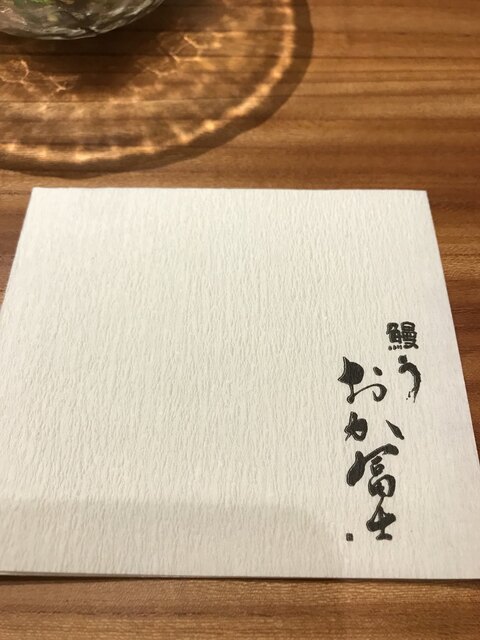 鰻う
おか冨士